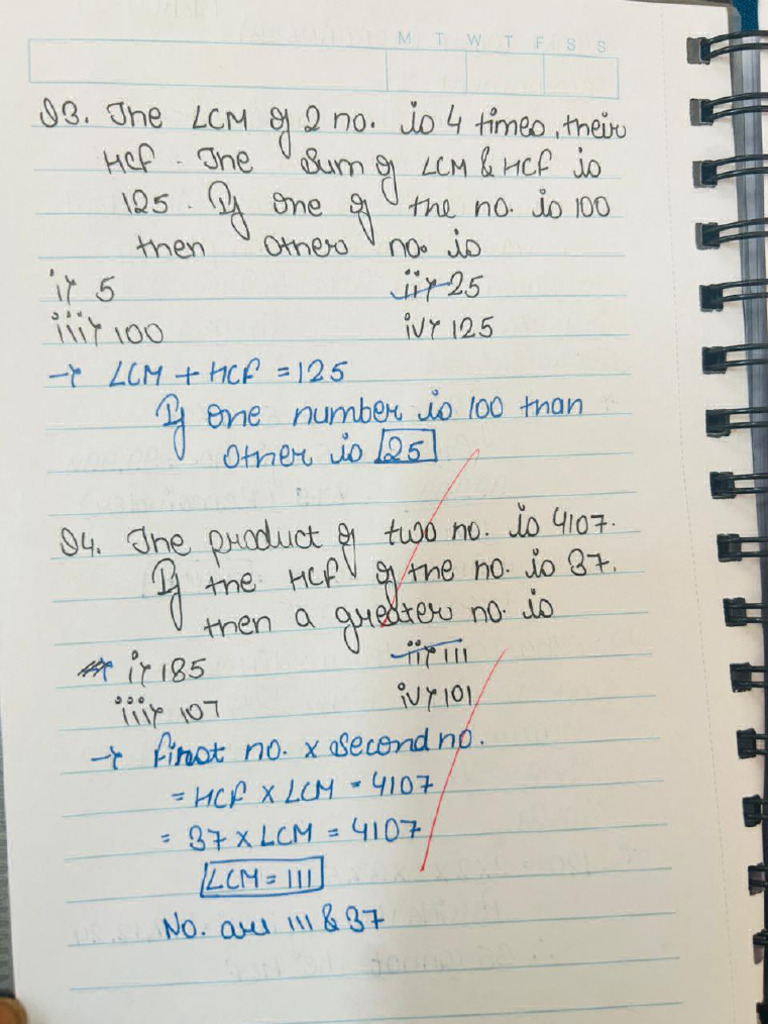 M T W T F S S
Q3. The LCM of 2 no. is 4 times, their
HCF. The Sum of LCM & HCF is
125. If one of the no. is 100
then others no. is
i) 5 ii) 25
iii) 100 iv) 125
→ LCM + HCF = 125
If one number is 100 than
other is 25
Q4. The product of two no. is 4107.
If the HCF of the no. is 37.
then a greater no. is
i) 185 ii) 111
iii) 107 iv) 101
→ First no. x second no.
= HCF x LCM = 4107
= 37 x LCM = 4107
LCM = 111
No. are 111 & 37